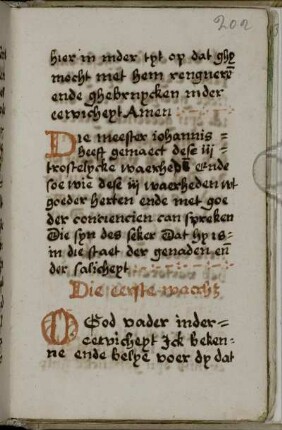 202
hier in inder tyt op dat ghy
mocht met hem rengnerē
ende ghebruycken inder
eewicheyt Amen
Die meester iohannis =
heeft gemaect dese iij
trostelycke waerhedē ende
soe wie dese iij waerheden wt
goeder herten ende met goe
der conciencien can spreken
Die syn des seker Dat hy is-
in die staet der genaden eñ
der salicheyt
Die eerste waerh
O God vader inder=
eewicheyt Ick beken-
ne ende belye voer dy dat